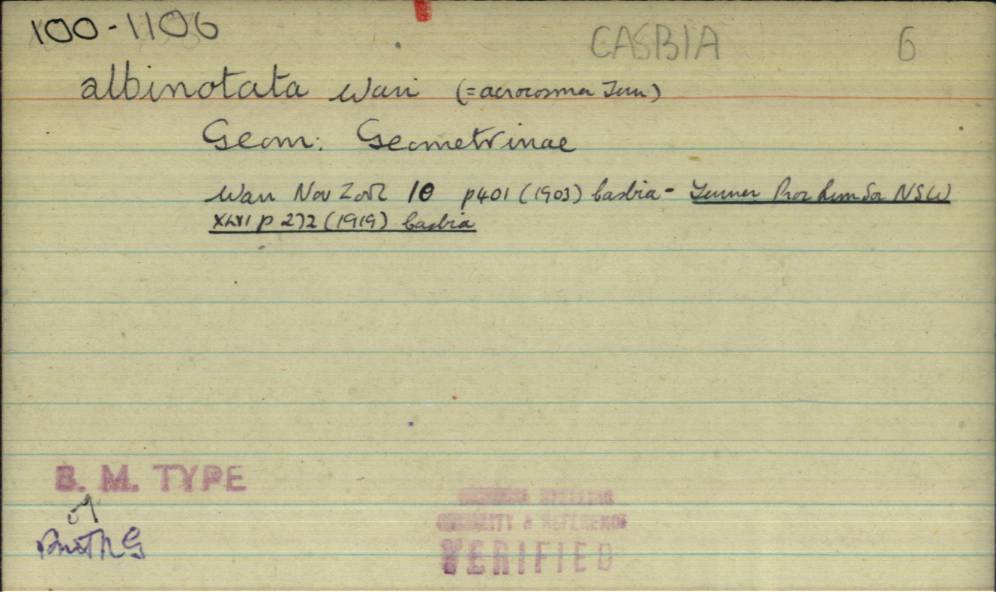 100-1106 CASBIA 6
albinotata Warr (=acrocosma Turn)
Geom: Geometrinae
Warr Nov Zool 10 p401 (1903) Casbia - Turner Proc Linn Soc NSW
XLIV p 272 (1919) Casbia
B. M. TYPE
♂
Brit N G
SPELLING
& REFERENCE
VERIFIED